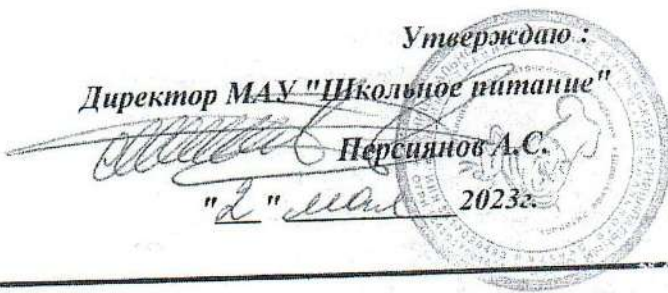 Утверждаю :
Директор МАУ "Школьное питание"
Персиянов А.С.
"2" мая 2023г.